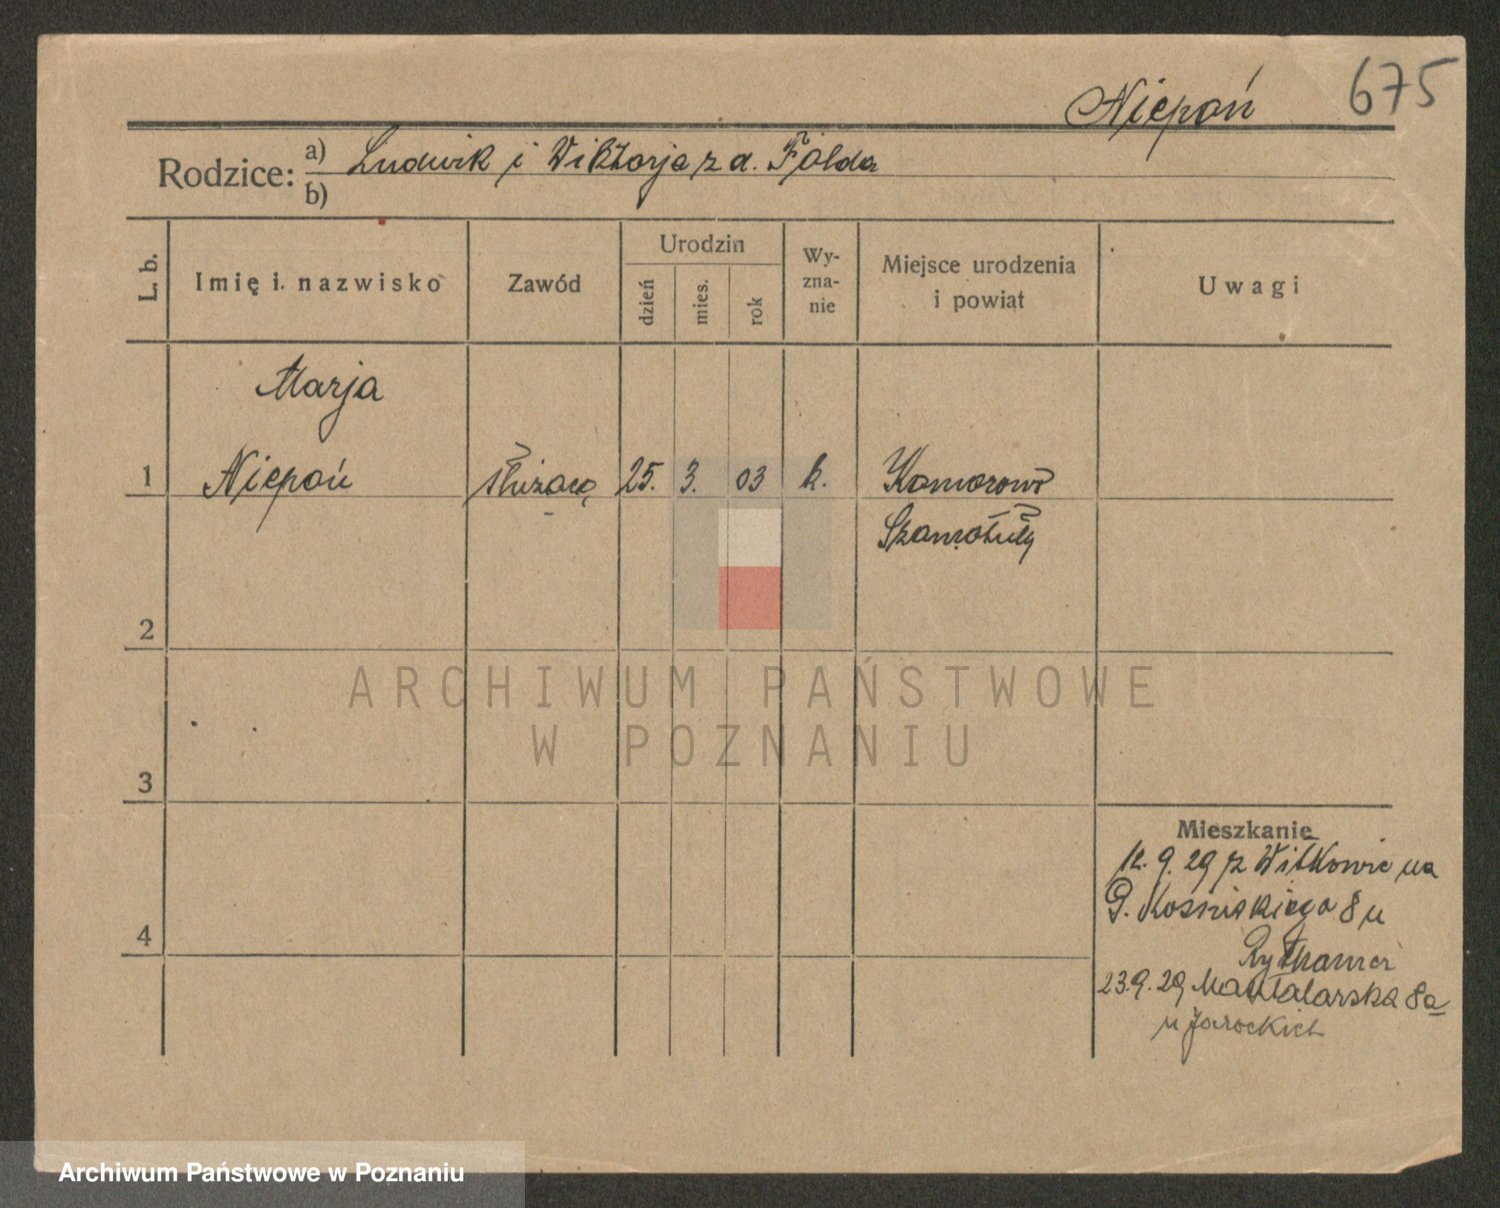 675
Niepoń
Rodzice: a) Ludwik i Wiktorja z d. Fołda
b)
L. b.
Imię i nazwisko
Zawód
Urodzin
dzień
mies.
rok
Wy-
zna-
nie
Miejsce urodzenia
i powiat
Uwagi
Marja
1 Niepoń służącą 25. 3. 03 k. Komorowo
Szamotuły
2
3
4
Mieszkanie
12. 9. 29 z Witkowic na
G. Kosińskiego 8 u
23.9.29 Masztalarska 8a
u Jarockich
ARCHIWUM PAŃSTWOWE
W POZNANIU
Archiwum Państwowe w Poznaniu